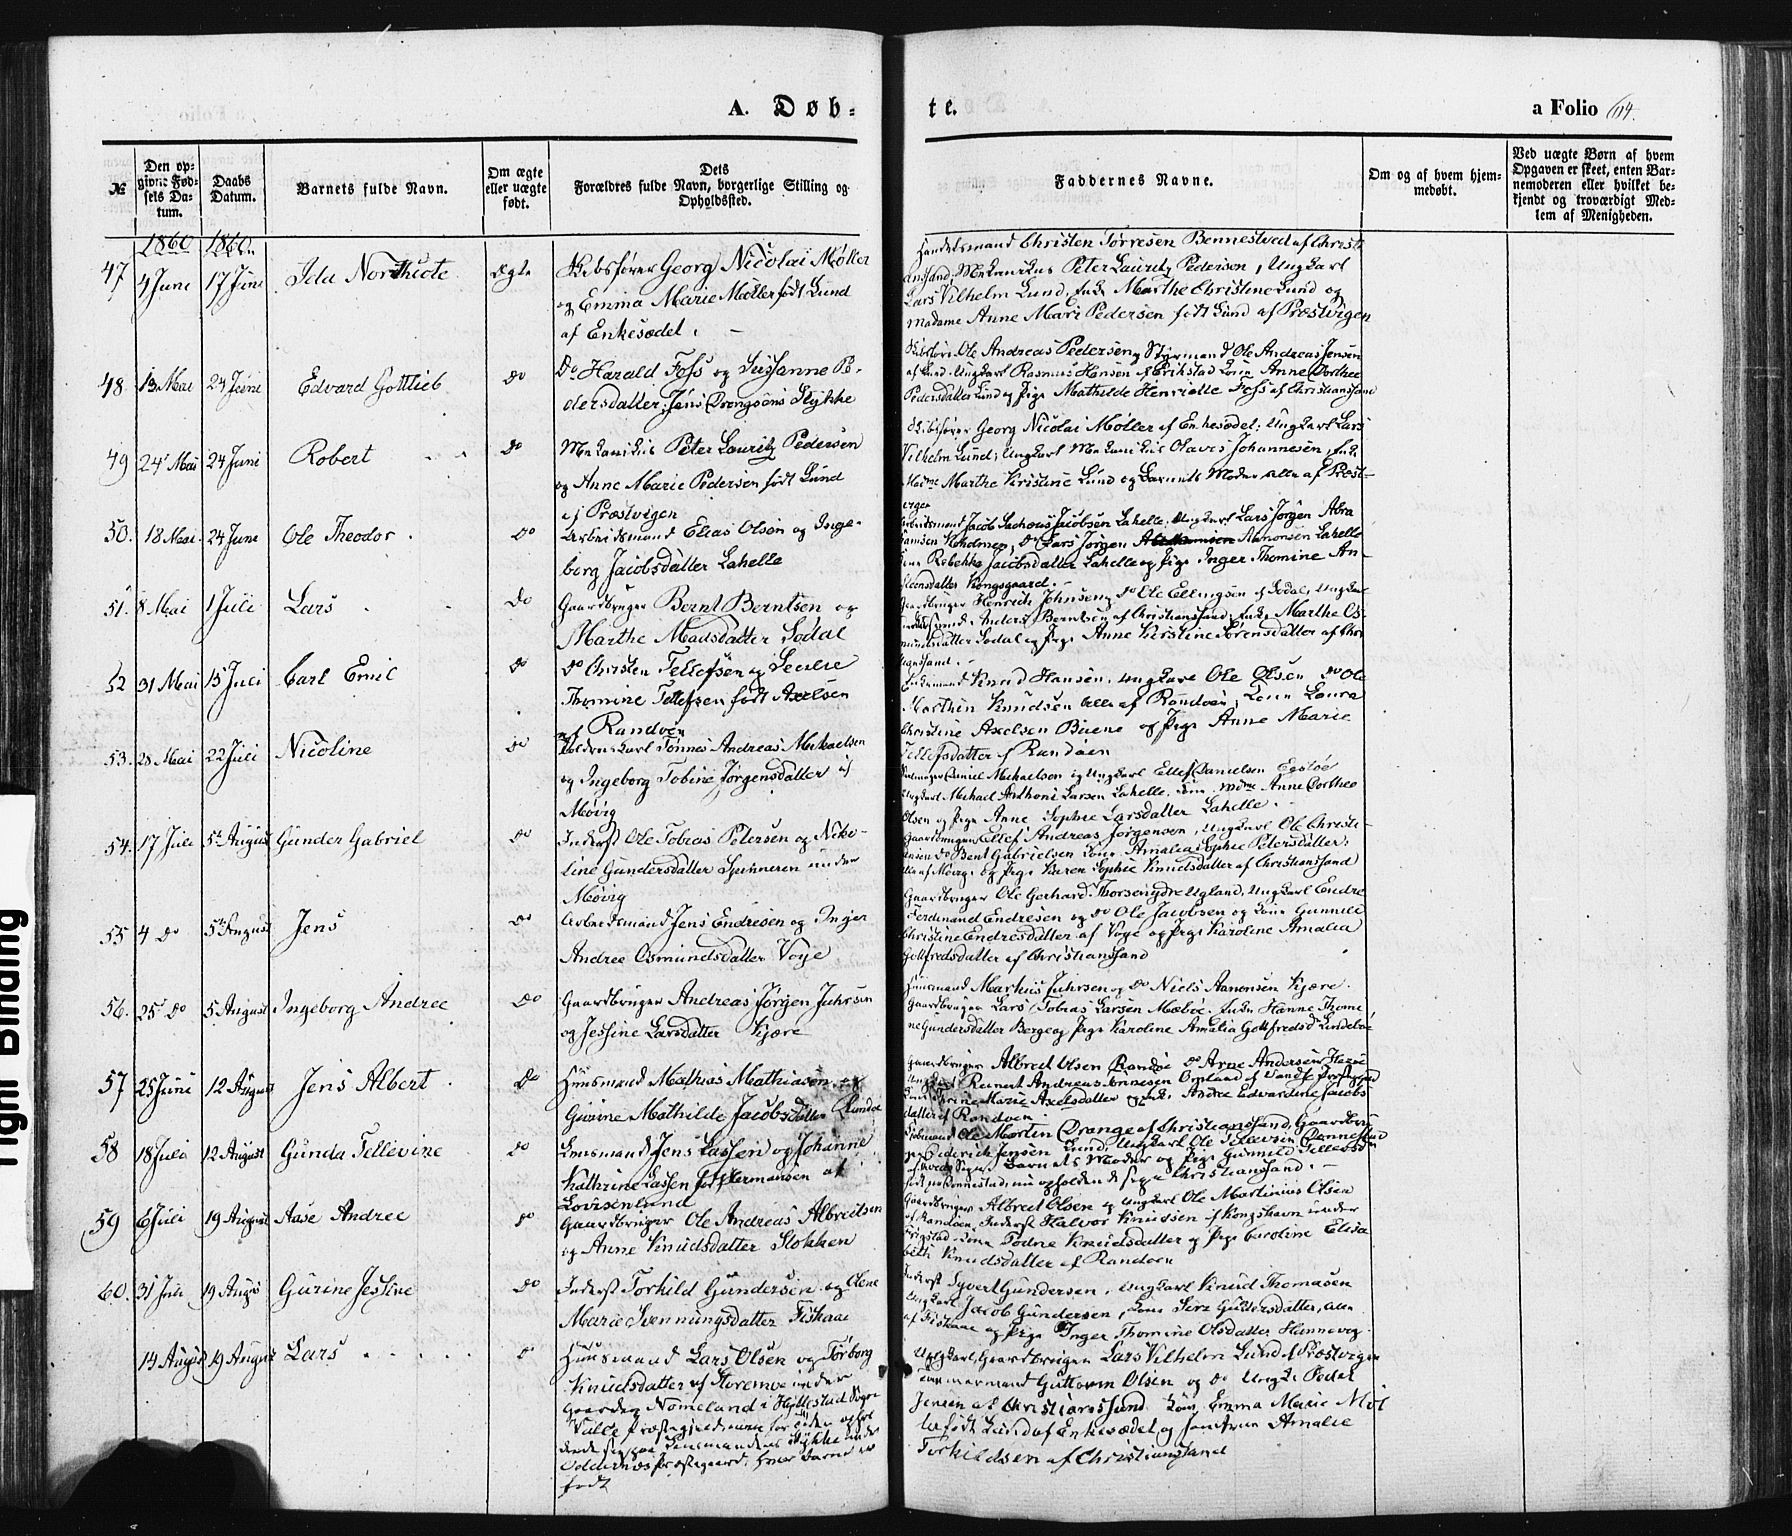 A. Døb-
te.
a Folio 114.
№
Den op-
givne Fød-
sels Da-
tum.
Daabs
Datum.
Barnets fulde Navn.
Om ægte
eller uægte
født.
Dets
Forældres fulde Navn, borgerlige Stilling og
Opholdssted.
Faddernes Navne.
Om og af hvem hjem-
medøbt.
Ved uægte Børn af hvem
Opgaven er skeet, enten Bar-
nemoderen eller hvilket be-
kjendt og troværdigt Med-
lem af Menigheden.
1860 1860
47 4 Juni 17 Juni Ida Northcote Ægte Skibsfører Georg Nicolai Møller
og Emma Marie Møller født Lund
af Enkesædet.
Handelsmand Christen Tørresen Bennestved af Christi
ansand, Mekanikus Peter Lauritz Pedersen, Ungkarl
Lars Vilhelm Lund, Enke Marthe Christine Lund og
Madame Anne Mari Pedersen født Lund af Præstvigen
48 13 Mai 24 Juni Edvard Gottlieb Do Do Harald Foss og Sussanne Pe-
dersdatter, Jens Drengsøns Stykke
Ole Andreas Pedersen, Styrmand Ole Andreas Jensen
af Lund, Ungkarl Rasmus Hansen af Erikstad, Kone Anne Dorthee
Pedersdatter Lund og Pige Mathilde Henriette Foss af Christiansand
49 24 Mai 24 Juni Robert Do Mekanikus Peter Lauritz Pedersen
og Anne Marie Pedersen født Lund
i Præstvigen
Skibsfører Georg Nicolai Møller af Enkesædet, Ungkarl Lars
Vilhelm Lund, Ungkarl Mekanikus Olaves Johannesen, Enke
Marthe Kristine Lund og Barnets Moder alle af Præst-
vigen
50. 18 Mai 24 Juni Ole Theodor Do Arbeidsmand Elias Olsøn og Inge-
borg Jacobsdatter Lahelle
Arbeidsmand Jacob Jacobsen Lahelle, Ungkarl Lars Jørgen Abra
hamsen Koholmen, Do Lars Jørgen Aanonsen Lahelle
Kone Rebekka Jacobsdatter Lahelle og Pige Inger Thomine An-
Kongsgaard.
51. 8 Mai 1 Juli Lars Do Gaardbruger Bernt Berntsen og
Marthe Madsdatter Sødal
Gaardbruger Henrich Johnsen, Do Ole Ellingsen af Sødal, Ungkarl
Anders Berntsen af Christianssand, Enke Marthe Os-
mundsdatter Sødal og Pige Anne Kirstine Sørensdatter af Chri
stianssand.
52 31 Mai 15 Juli Carl Emil Do Do Christen Tellefsen og Secilie
Thomine Tellefsen født Axelsen
af Randøen
Knud Hansen, Ungkarl Ole Olsen, Do Ole
Marthin Knudsen alle af Randøen, Kone Laura
Christine Axelsen Buene og Pige Anne Marie
Tellefsdatter af Randøen
53. 28 Mai 22 Juli Nicoline Do Tønnes Andreas Mikaelsen
og Ingeborg Tobine Jørgensdatter af
Møvig
Daniel Mikaelsen og Ungkarl Ellef Danielsen Egsløe
Ungkarl Mikael Anthoni Larsen Lahelle, Anne Dorthee
Olsen og Pige Anne Sophie Larsdatter Lahelle.
54. 17 Juli 5te August Gunder Gabriel Do Inderst Ole Tobias Petersen og Niko-
line Gundersdatter Spinneren under
Møvig
Gaardbruger Ellef Andreas Jørgensen, Ungkarl Ole Christi-
ansen, Do Bent Gabrielsen, Kone Amalia Sophie Petersdatter
alle af Møvig og Pige Karen Sophie Knudsdatter af Christianssand
55 4 Do 5te August Jens Do Arbeidsmand Jens Endresen og Inger
Andree Osmundsdatter Voie
Gaardbruger Ole Gerhard Thorsen ydre Ugland, Ungkarl Endre
Ferdinand Endresen og Do Ole Jacobsen og Kone Gunnild
Christine Endresdatter af Voge og Pige Karoline Amalia
Gottfredsdatter af Christianssand
56. 25 Do 5 August Ingeborg Andree Do Gaardbruger Andreas Jørgen Juhrsen
og Jessine Larsdatter Kjære
Huusmand Markus Juhrsen og Do Niels Aanonsen Kjære,
Gaardbruger Lars Tobias Larsen Mæbøe, Enke Hanne Thomi
ne Gundersdatter Berge og Pige Karoline Amalia Gottfredsd. Lindebøe
57 25 Juni 12 August Jens Albert Do Huusmand Mathias Mathiasen og
Gurine Mathilde Jacobsdatter Randøe
Gaardbruger Albret Olsen Randøe, Do Arne Andersen
Reinert Andreas Tønnesen Omland af Vandse Præstegjeld
Marie Axelsdatter og Enke Andre Edvardine Jacobs
datter af Randøen
58 18 Juli 12 August Gunda Tellevine Do Huusmand Jens Lassen og Johanne
Kathrine Lassen født Hermansen af
Lovisenlund
Ole Mortin Drange af Christianssand, Gaardbru
ger Diderich Jensen Lund, Ungkarl Ole Tellevsen Bennestad
Barnets Moder og Pige Gunnild Tellevsd.
født paa Bennestad, nu opholdende sig i Christianssand.
59 6 Juli 19 August Aase Andree Do Gaardbruger Ole Andreas Albretsen
og Anne Knudsdatter Stokken
Gaardbruger Albret Olsen og Ungkarl Ole Martinius Olsen
af Randøen, Inderst Halvor Knudsen af Kongshavn under
Frigstad, Kone Todne Knudsdatter og Pige Caroline Elisa
beth Knudsdatter af Randøen
60. 31 Juli 19 August Gurine Jessine Do Inderst Torkild Gundersen og Olene
Marie Svenningsdatter Fiskaae
Inderst Syvert Gundersen, Ungkarl Knud Thomasen
Ungkarl Jacob Gundersen, Kone Siri Guttorsdatter, alle
af Fiskaae og Pige Inger Thomine Olsdatter Hannevig
14 August 19 August Lars Do Huusmand Lars Olsen og Torborg
Knudsdatter af Storemoe under
Gaarden Nomeland i Hyllestad Sogn
Valle Præstegjeld, nu for tiden ophol
dende sig paa Lensmandens Stykke under
Oddernes Præstegaard, hvor Barnet er
født
Ungkarl, Gaardbruger Lars Vilhelm Lund af Præstvigen
Tømmermand Guttorm Olsen og Do Ungk. Peder
Jensen af Christianssand, Kone Emma Marie Møl
ler født Lund af Enkesædet og Jomfrue Amalie
Torkildsen af Christianssand
Tight Binding